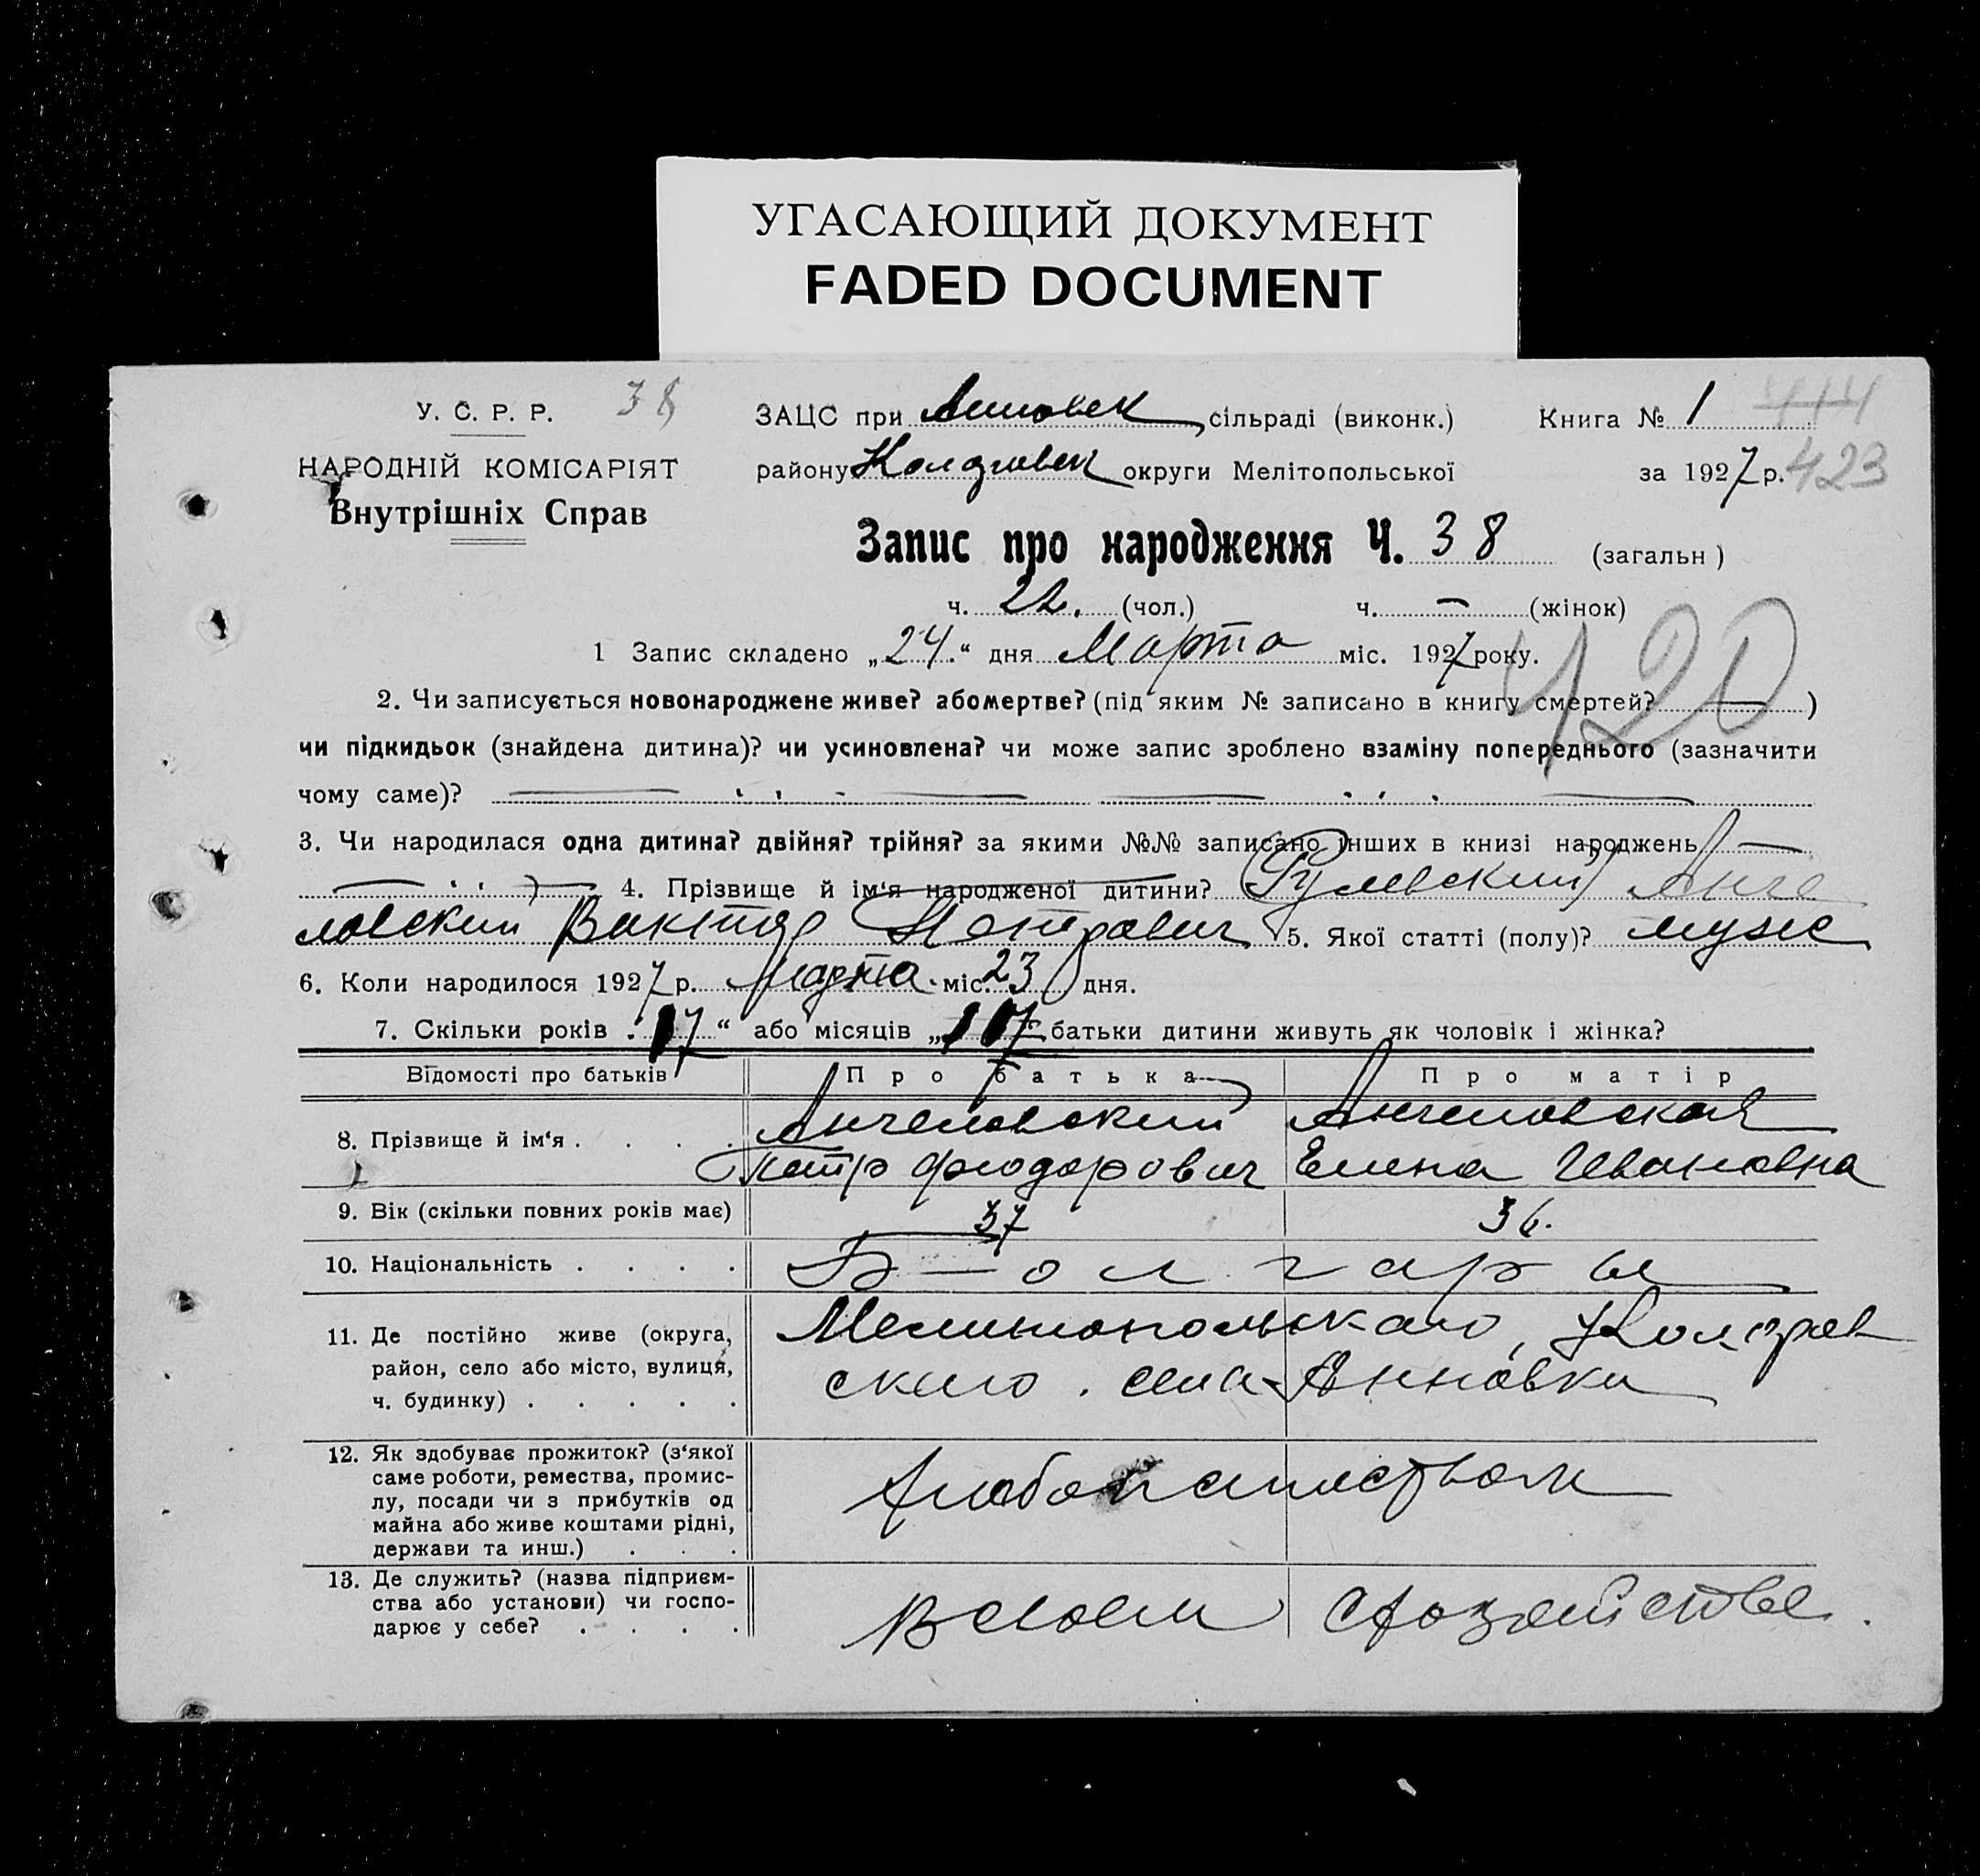 УГАСАЮЩИЙ ДОКУМЕНТ
FADED DOCUMENT
У. С. Р. Р. 38
НАРОДНІЙ КОМІСАРІЯТ
Внутрішніх Справ
ЗАЦС при Анновск сільраді (виконк.) Книга № 1 414
району округи Мелітопольської за 1927 р. 423
Запис про народження Ч. 38 (загальн )
ч. 22. (чол.) ч. — (жінок)
1 Запис складено „24.“ дня Марта міс. 1927 року.
120
2. Чи записується новонароджене живе? абомертве? (під яким № записано в книгу смертей? — )
чи підкидьок (знайдена дитина)? чи усиновлена? чи може запис зроблено взаміну попереднього (зазначити
чому саме)?
3. Чи народилася одна дитина? двійня? трійня? за якими №№ записано інших в книзі народжень —
) 4. Прізвище й ім‘я народженої дитини? Анге
ловский Виктор Петрович 5. Якої статті (полу)? муже
6. Коли народилося 1927 р. Марта міс. 23 дня.
7. Скільки років „17“ або місяців „ “ батьки дитини живуть як чоловік і жінка?
Відомості про батьків Про батька Про матір
8. Прізвище й ім‘я . . . . Ангеловский Ангеловская
Петр Фиодорович Елена Ивановна
9. Вік (скільки повних років має) 37 36.
10. Національність . . . . Б—олгары
11. Де постійно живе (округа,
район, село або місто, вулиця,
ч. будинку) . . . . .
Мелитопольскаго,
скаго. села Анновки
12. Як здобуває прожиток? (з‘якої
саме роботи, ремества, промис-
лу, посади чи з прибутків од
майна або живе коштами рідні,
держави та инш.) . . .
Хлебопашеством
13. Де служить? (назва підприєм-
ства або установи) чи госпо-
дарює у себе? . . . .
В своем хозяйстве.